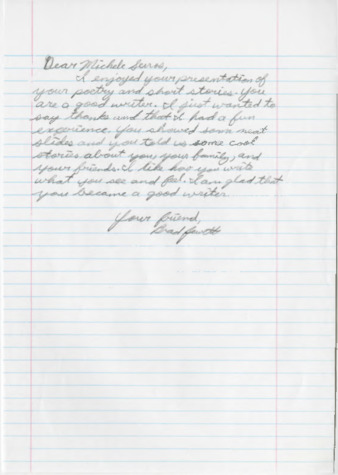 Dear Michele Serros,
I enjoyed your presentation of
your poetry and short stories. You
are a good writer. I just wanted to
say thanks and that I had a fun
experience. You showed some neat
slides and you told us some cool
stories about you, your family, and
your friends. I like how you write
what you see and feel. I am glad that
you became a good writer.
Your friend,
Brad